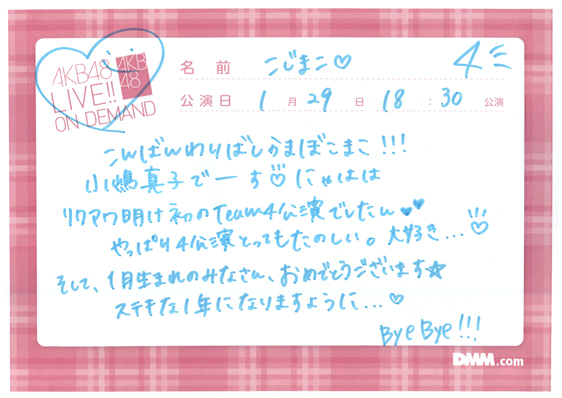 AKB48
LIVE!!
ON DEMAND
AKB
48
名前 こじまこ♡ 4
公演日 1月29日 18:30公演
こんばんわりばしかまぼこまこ!!!
小嶋真子でーす♡にゃはは
リクアワ明け初のTeam4公演でしたん♥♥
やっぱり4公演とってもたのしい。大好き...♡
そして、1月生まれのみなさん、おめでとうございます☆
ステキな1年になりますように...♡
ByeBye!!!
DMM.com